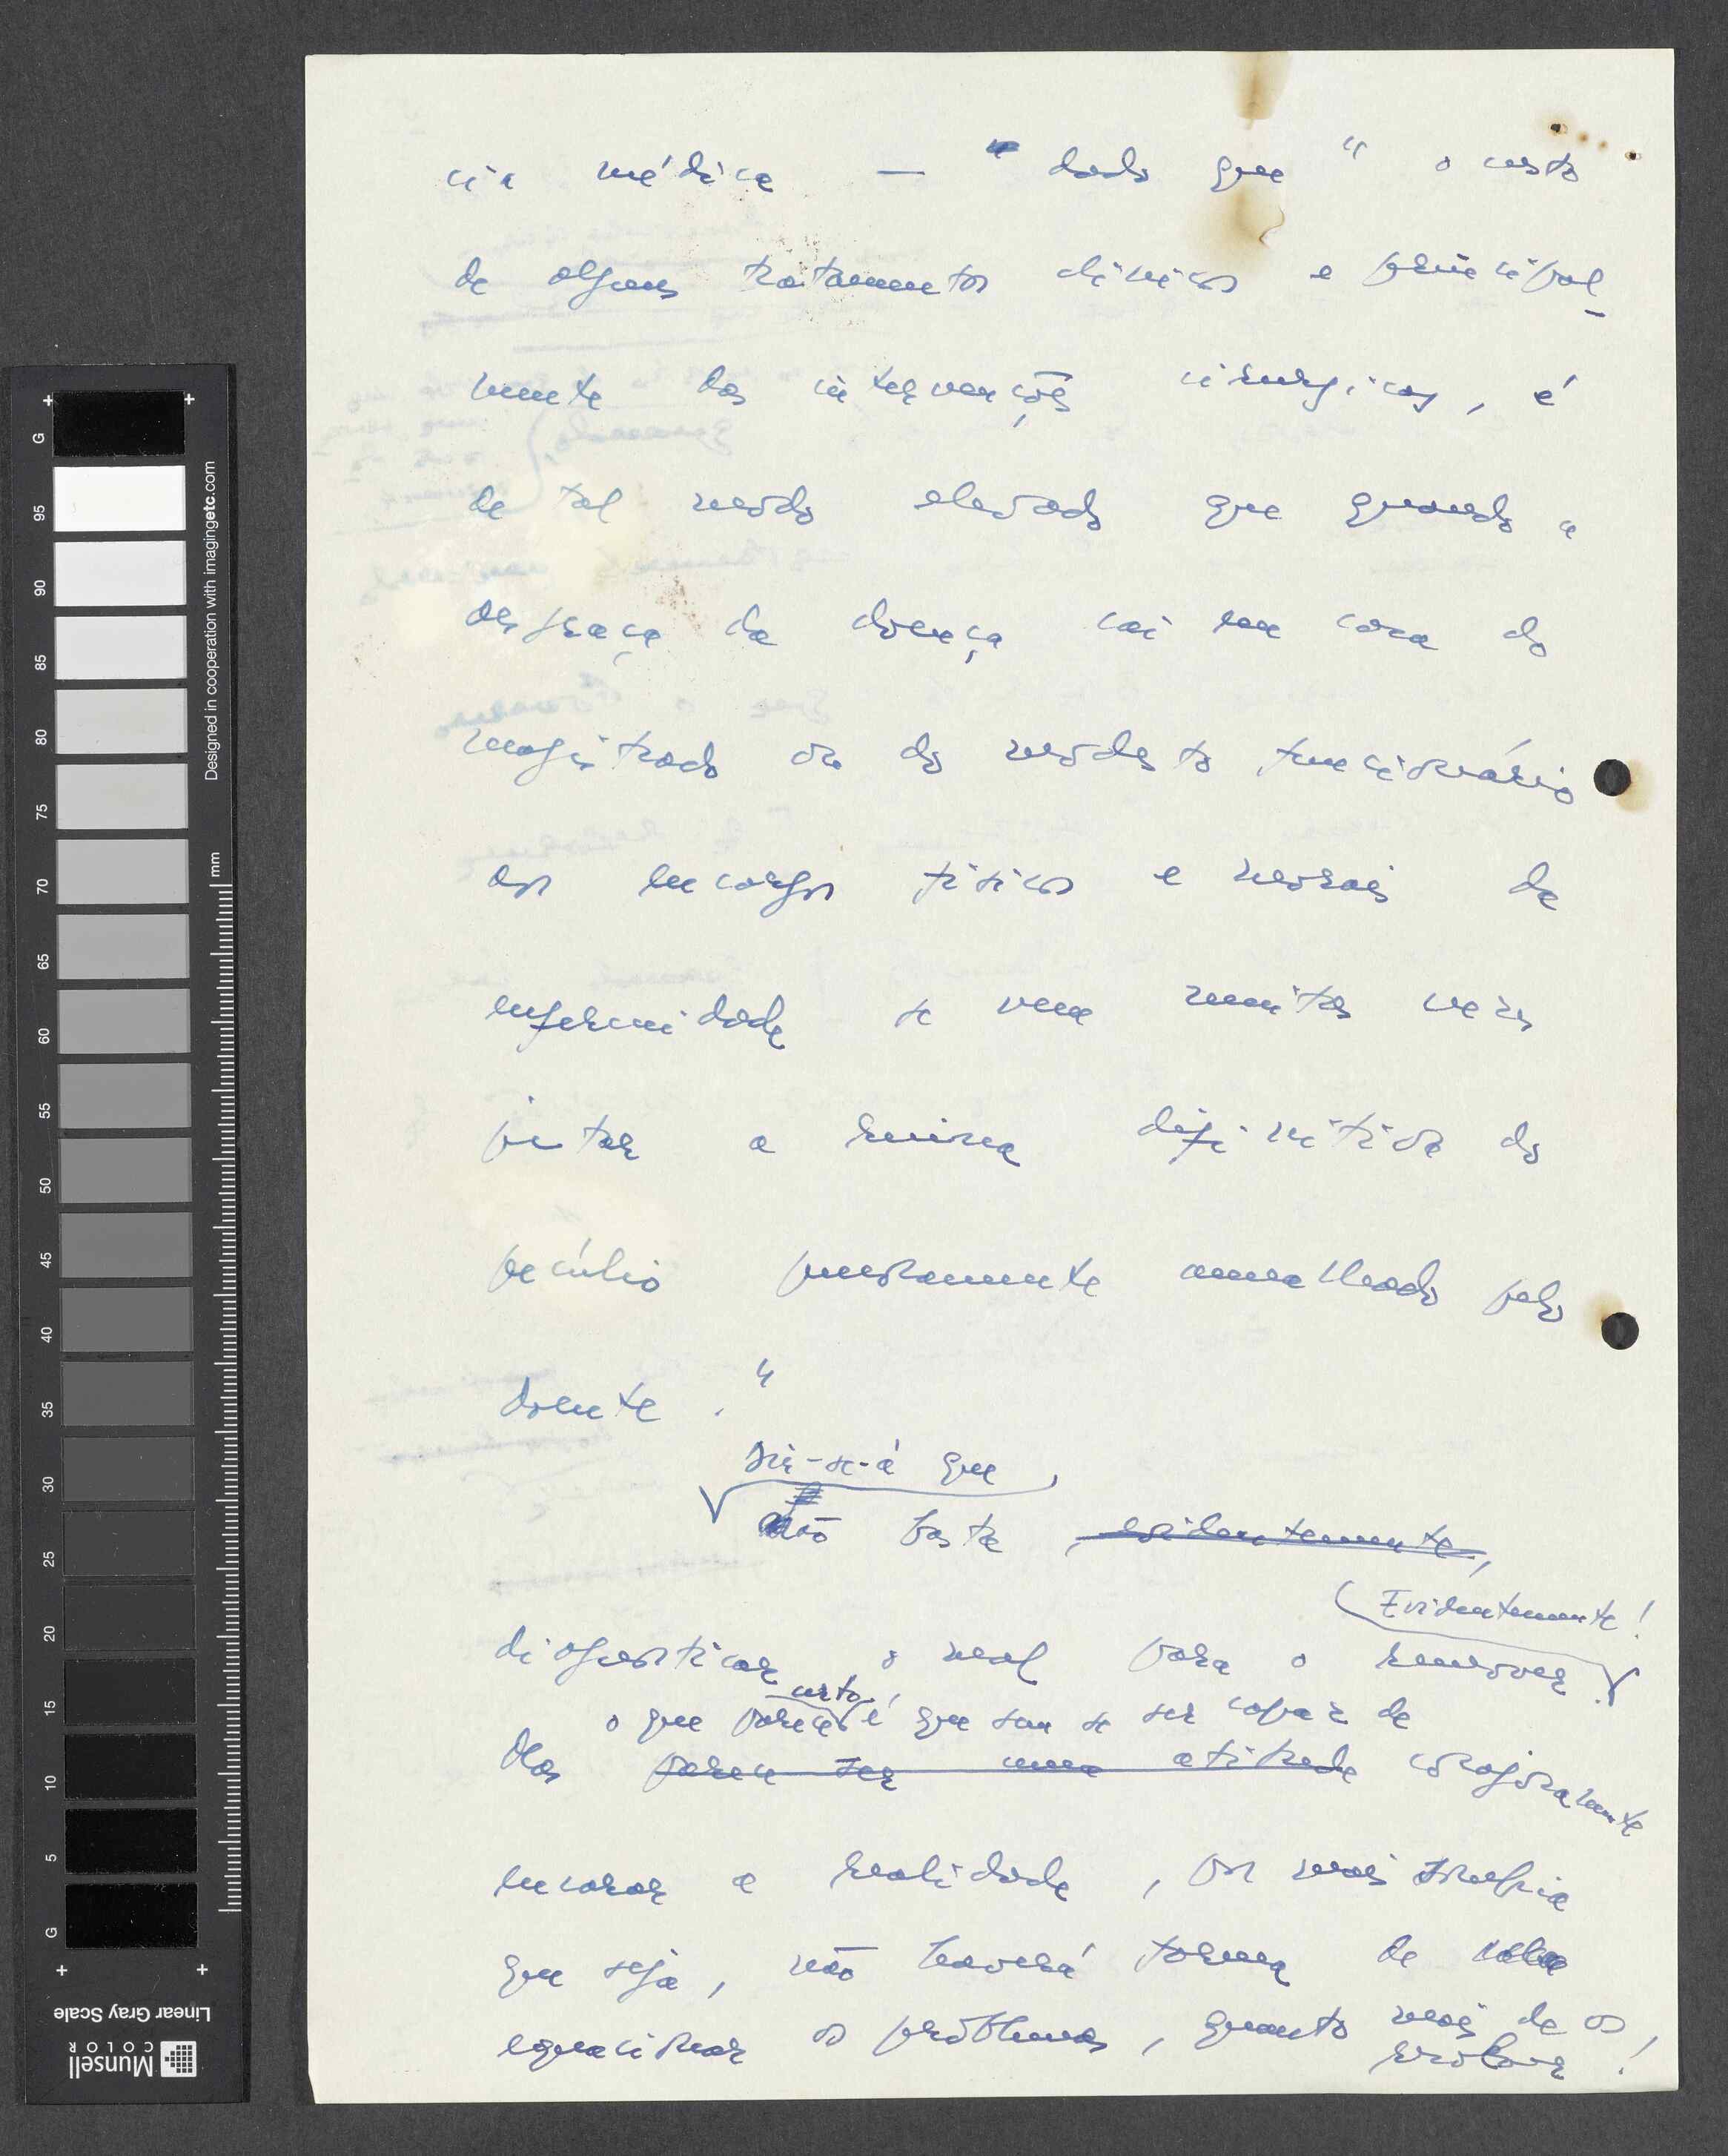 cia médica — "dado que" o custo
de alguns tratamentos clínicos e principal-
mente das intervenções cirúrgicas, é
de tal modo elevado que quando a
desgraça da doença cai em casa do
magistrado ou do modesto funcionário
aos encargos físicos e morais da
enfermidade se vem muitas vezes
juntar a ruína definitiva do
pecúlio penosamente amealhado pelo
doente."
Dir-se-á que
não basta, evidentemente,
(Evidentemente!
diagnosticar o mal para o remover.
certo,
o que parece é que sem se ser capaz de
Mas parece ser uma atitude corajosamente
encarar a realidade, por mais
que seja, não haverá forma de
equacionar os problemas, quanto mais de os,
resolver!
G
95
90
85
80
75
70
65
60
55
50
45
40
35
30
25
20
15
10
5
G
mm
Designed in cooperation with imagingetc.com
Linear Gray Scale
Munsell
COLOR